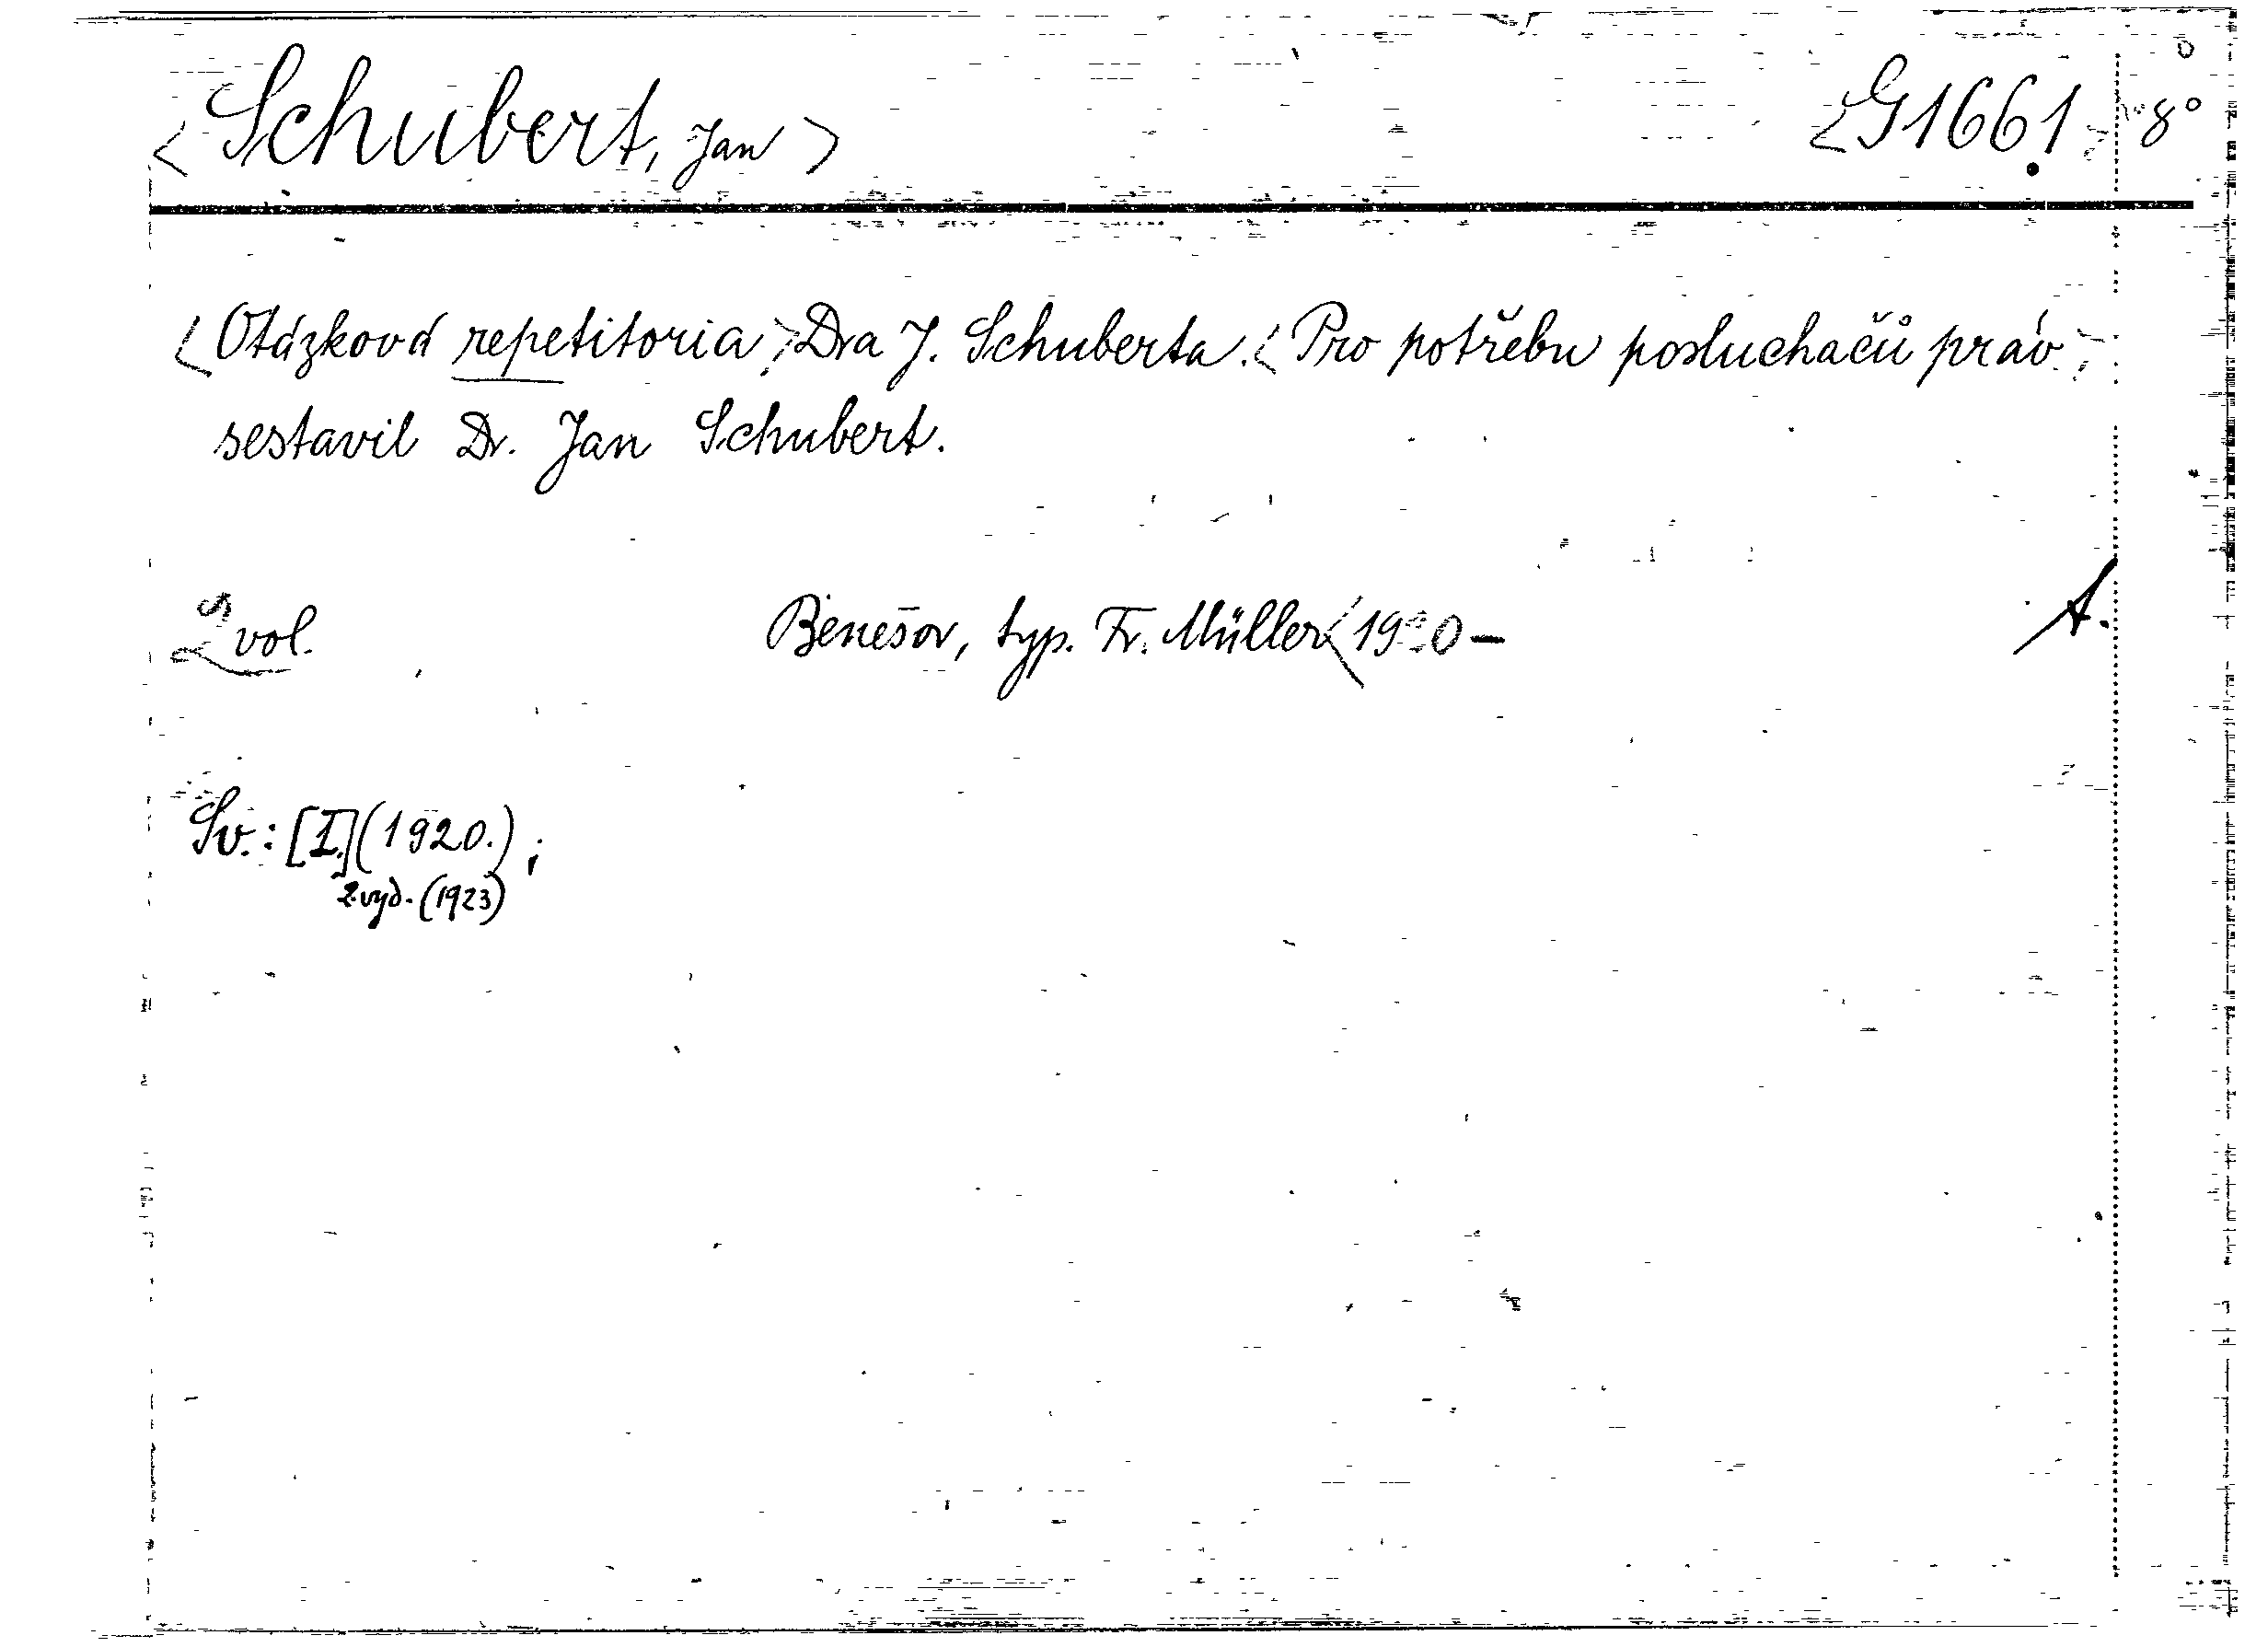 <Schubert, Jan> <G1661> 8°
<Otázková repetitoria,> Dra J. Schuberta. <Pro potřebu posluchačů práv>
sestavil Dr. Jan Schubert.
vol. Benešov, typ. Fr. Müller <1920 - A.
Sv.: [I.] (1920.);
2. vyd. (1923)